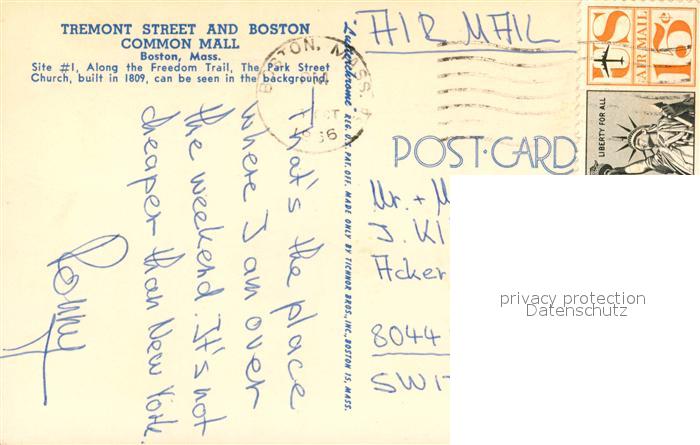 TREMONT STREET AND BOSTON
COMMON MALL
Boston, Mass.
Site #1, Along the Freedom Trail, The Park Street
Church, built in 1809, can be seen in the background.
That's the place
where I am over
the weekend. It's not
cheaper than New York.
"Luxterchrome" REG. U.S. PAT. OFF. MADE ONLY BY TICHNOR BROS., INC., BOSTON 15, MASS.
AIR MAIL
BOSTON, MASS.
US
AIR MAIL
15¢
LIBERTY FOR ALL
POST-CARD
Mr. +
J.
Acker
8044
SWIT
privacy protection
Datenschutz